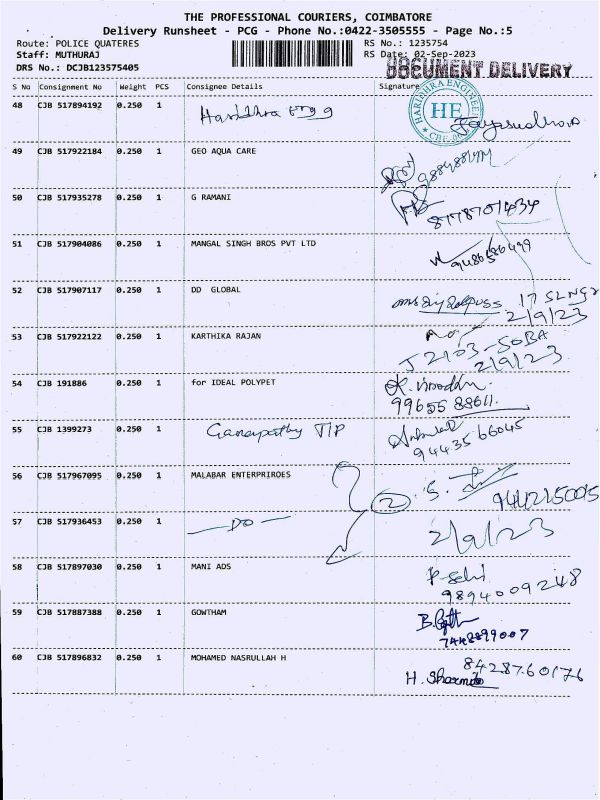 THE PROFESSIONAL COURIERS, COIMBATORE
Delivery Runsheet - PCG - Phone No.:0422-3505555 - Page No.:5
Route: POLICE QUATERES
RS No.: 1235754
Staff: MUTHURAJ
RS Date: 02-Sep-2023
DRS No.: DCJB123575405
DOCUMENT DELIVERY
S No Consignment No Weight PCS Consignee Details Signature
48 CJB 517894192 0.250 1 Haridhra Engg
HARIDHRA ENGINEER
HE
49 CJB 517922184 0.250 1 GEO AQUA CARE
50 CJB 517935278 0.250 1 G RAMANI
51 CJB 517904086 0.250 1 MANGAL SINGH BROS PVT LTD 9486586499
52 CJB 517907117 0.250 1 DD GLOBAL
2/9/23
53 CJB 517922122 0.250 1 KARTHIKA RAJAN
J2103-SOBA
2/9/23
54 CJB 191886 0.250 1 for IDEAL POLYPET
99655 88611.
55 CJB 1399273 0.250 1 Ganapathy TIP
94435 66045
56 CJB 517967095 0.250 1 MALABAR ENTERPRIROES 2 9442215005
57 CJB 517936453 0.250 1 — DO — 2/9/23
58 CJB 517897030 0.250 1 MANI ADS
9894009248
59 CJB 517887388 0.250 1 GOWTHAM
7448899007
60 CJB 517896832 0.250 1 MOHAMED NASRULLAH H 8428760176
H. Sharmila